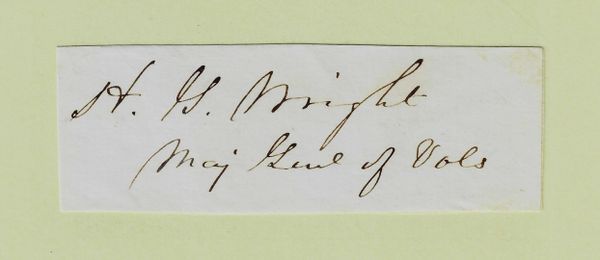 H. G. Wright
Maj Genl of Vols